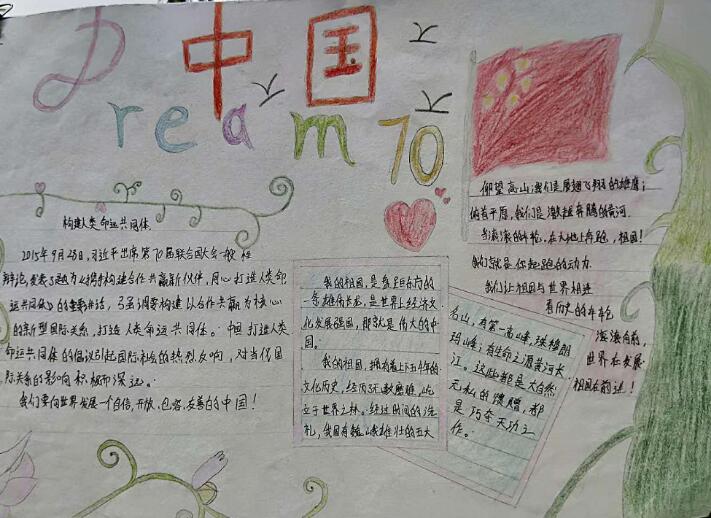 中国
Dream 70
构建人类命运共同体
2015年9月28,习近平出席第70届联合国大会一般性
辩论,发表了题为《携手构建合作共赢新伙伴,同心打造人类命
运共同体》的重要讲话,强调要构建以合作共赢为核心
的新型国际关系,打造人类命运共同体。中国打造人类
命运共同体的倡议引起国际社会的热烈反响,对当代国
际关系的影响积极而深远。
我们要向世界发展一个自信,开放,包容,友善的中国!
我的祖国,是东方的
一条雄伟长龙,是世界上经济文
化发展强国,那就是伟大的中
国。
我的祖国,拥有着上下五千年的
文化历史,经历无数磨难,屹
立于世界之林。经过时间的洗
礼,我国有巍峨雄壮的五大
名山,有第一高峰,珠穆朗
玛峰;有生命之源黄河长
江。这些都是大自然
无私的馈赠,都
是巧夺天功之
作。
仰望高山我们是展翅飞翔的雄鹰;
俯看平原,我们是激越奔腾的黄河.
在大地上奔跑,祖国!
我们就是你起跑的动力.
我们让祖国与世界相连
看历史的车轮
滚滚向前,
世界在发展
祖国在前进!